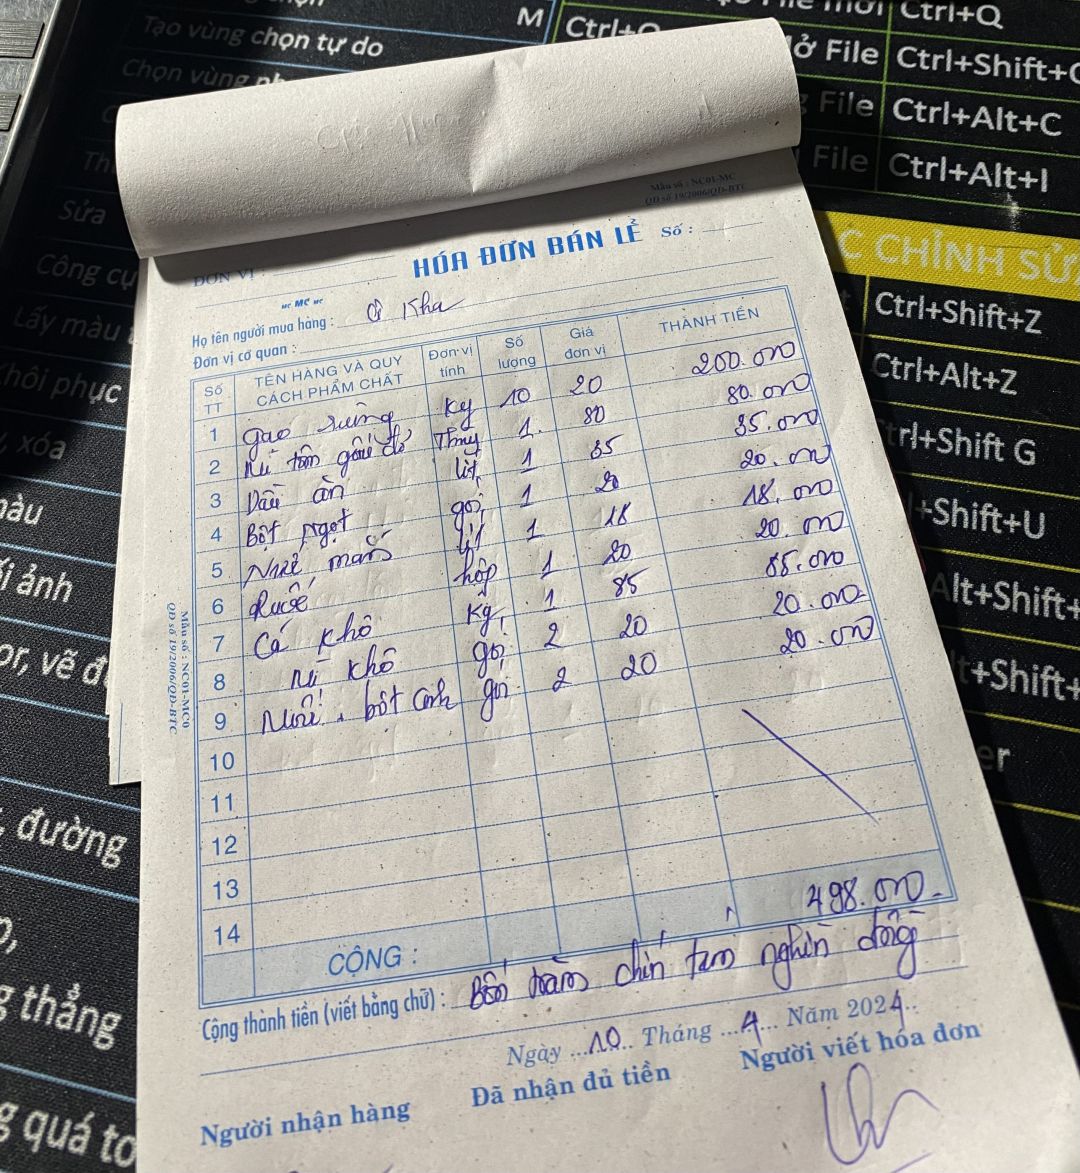 Tạo vùng chọn tự do
M
Ctrl+Q
Chọn vùng
Ctrl+Shift+
Ctrl+Alt+C
Ctrl+Alt+I
ở File
File
File
Sửa
Công cụ
lấy màu
khôi phục
xóa
C CHỈNH SỬA
Ctrl+Shift+Z
Ctrl+Alt+Z
trl+Shift G
+Shift+U
Alt+Shift+
t+Shift+
màu
ối ảnh
or, vẽ đ
, đường
g thẳng
g quá to
Mẫu số : NC01-MC
QĐ số 19/2006/QĐ-BTC
ĐƠN VỊ :
HÓA ĐƠN BÁN LẺ
Số :
MC MC MC
Họ tên người mua hàng : Kha
Đơn vị cơ quan :
Số TT TÊN HÀNG VÀ QUY CÁCH PHẨM CHẤT Đơn vị tính Số lượng Giá đơn vị THÀNH TIỀN
1 gạo kg 10 20 200.000
2 mì tôm gấu đỏ Thùng 1 80 80.000
3 Dầu ăn lít 1 35 35.000
4 Bột ngọt gói 1 20 20.000
5 Nước mắm lít 1 18 18.000
6 Ruốc hộp 1 20 20.000
7 Cá khô kg 1 85 85.000
8 mì khô gói 2 20 20.000
9 bột canh gói 2 20 20.000
10
11
12
13
14
CỘNG : 498.000
Cộng thành tiền (viết bằng chữ) : Bốn trăm chín tám nghìn đồng
Ngày 10 Tháng 4 Năm 2024
Người nhận hàng Đã nhận đủ tiền Người viết hóa đơn
Mẫu số : NC01-MC0
QĐ số 19/2006/QĐ-BTC